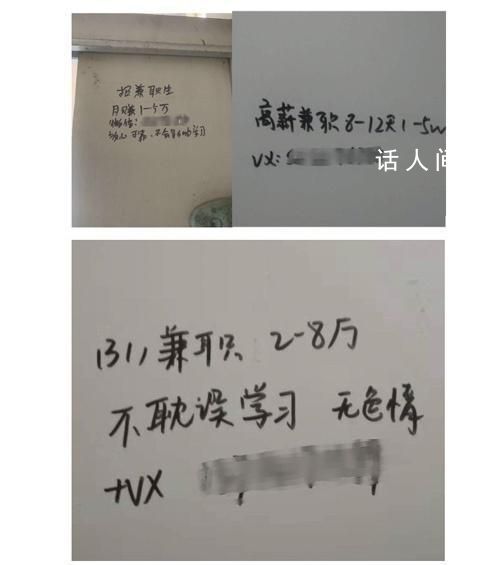 招兼职生
月赚1-5万
微信:
可靠.不会影响学习
高薪兼职8-12天1-5w
VX:
话人间
(31)兼职 2-8万
不耽误学习 无色情
+VX